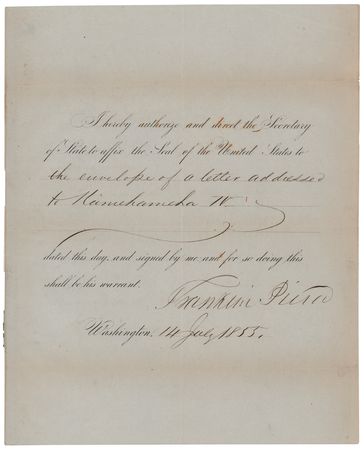 I hereby authorize and direct the Secretary
of State to affix the Seal of the United States to
the envelope of a letter addressed
to Kamehameha IV.
dated this day, and signed by me and for so doing this
shall be his warrant.
Franklin Pierce
Washington, 14 July 1855.